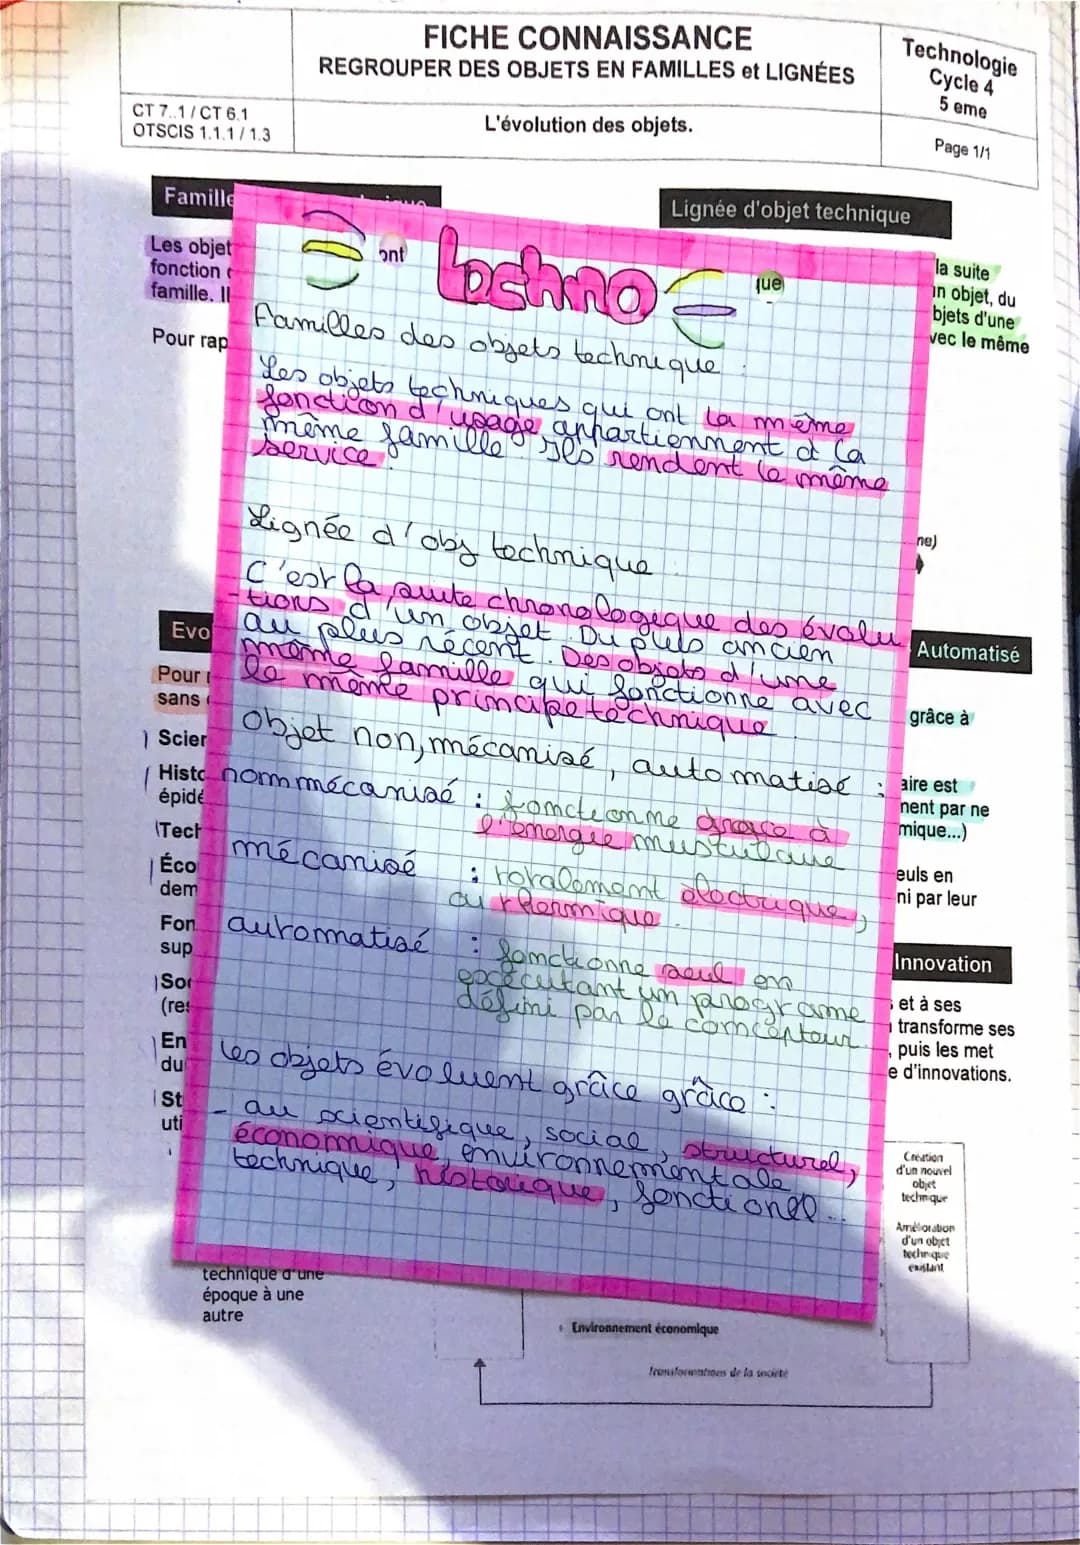 FICHE CONNAISSANCE
REGROUPER DES OBJETS EN FAMILLES et LIGNÉES
Technologie
Cycle 4
5 eme
CT 7..1 / CT 6.1
OTSCIS 1.1.1 / 1.3
L'évolution des objets.
Page 1/1
Famille
Lignée d'objet technique
Les objet
fonction
famille. Il
Pour rap
ont
que
la suite
un objet, du
bjets d'une
vec le même
techno
Familles des objets technique :
Les objets techniques qui ont la même
fonction d'usage appartiennent à la
même famille. Ils rendent le même
service.
Lignée d'obj technique
C'est la suite chronologique des évolu
-tions d'un objet. Du plus ancien
au plus récent. Des objets d'une
même famille qui fonctionne avec
le même principe technique.
objet non, mécanisé, automatisé :
non mécanisé : fonctionne grace à
l'énergie mustulaire
mécanisé : totalement électrique,
ou thermique.
automatisé : fonctionne seul en
exécutant un programe
défini par le concepteur.
les objets évoluent grâce grâce :
- au scientifique, social, structurel,
économique, environnementale,
technique, historique, fonctionel...
ne)
Evo
Automatisé
Pour
sans
grâce à
Scien
Histo
épidé
Tech
Éco
dem
Fon
sup
Soc
(res
En
du
St
uti
aire est
nent par ne
mique...)
euls en
ni par leur
Innovation
et à ses
transforme ses
, puis les met
e d'innovations.
Création
d'un nouvel
objet
technique
Amélioration
d'un objet
technique
existant
technique d'une
époque à une
autre
Environnement économique
transformations de la société